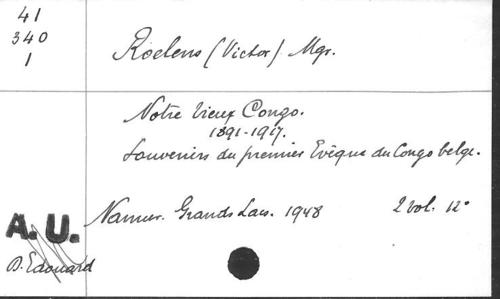 41
340
1
Roelens (Victor) Mgr.
Notre Vieux Congo.
1891-1917.
Souvenirs du premier Evêque du Congo belge.
Namur. Grands Lacs. 1948 2 vol. 12°
A. U.
D. Edouard